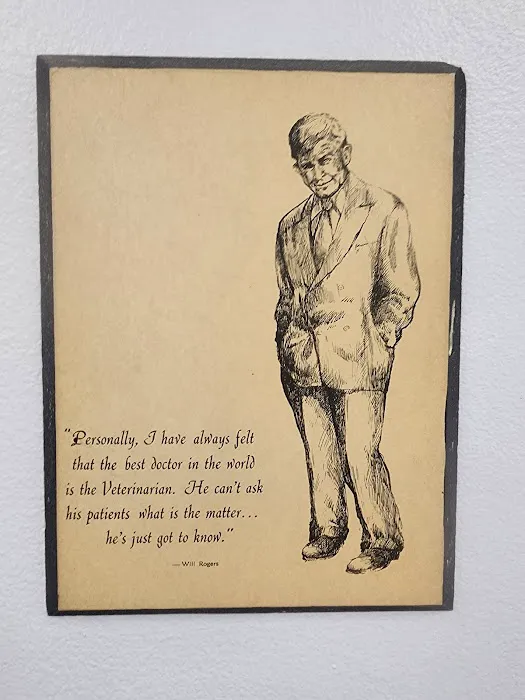 "Personally, I have always felt
that the best doctor in the world
is the Veterinarian. He can't ask
his patients what is the matter...
he's just got to know."
—Will Rogers